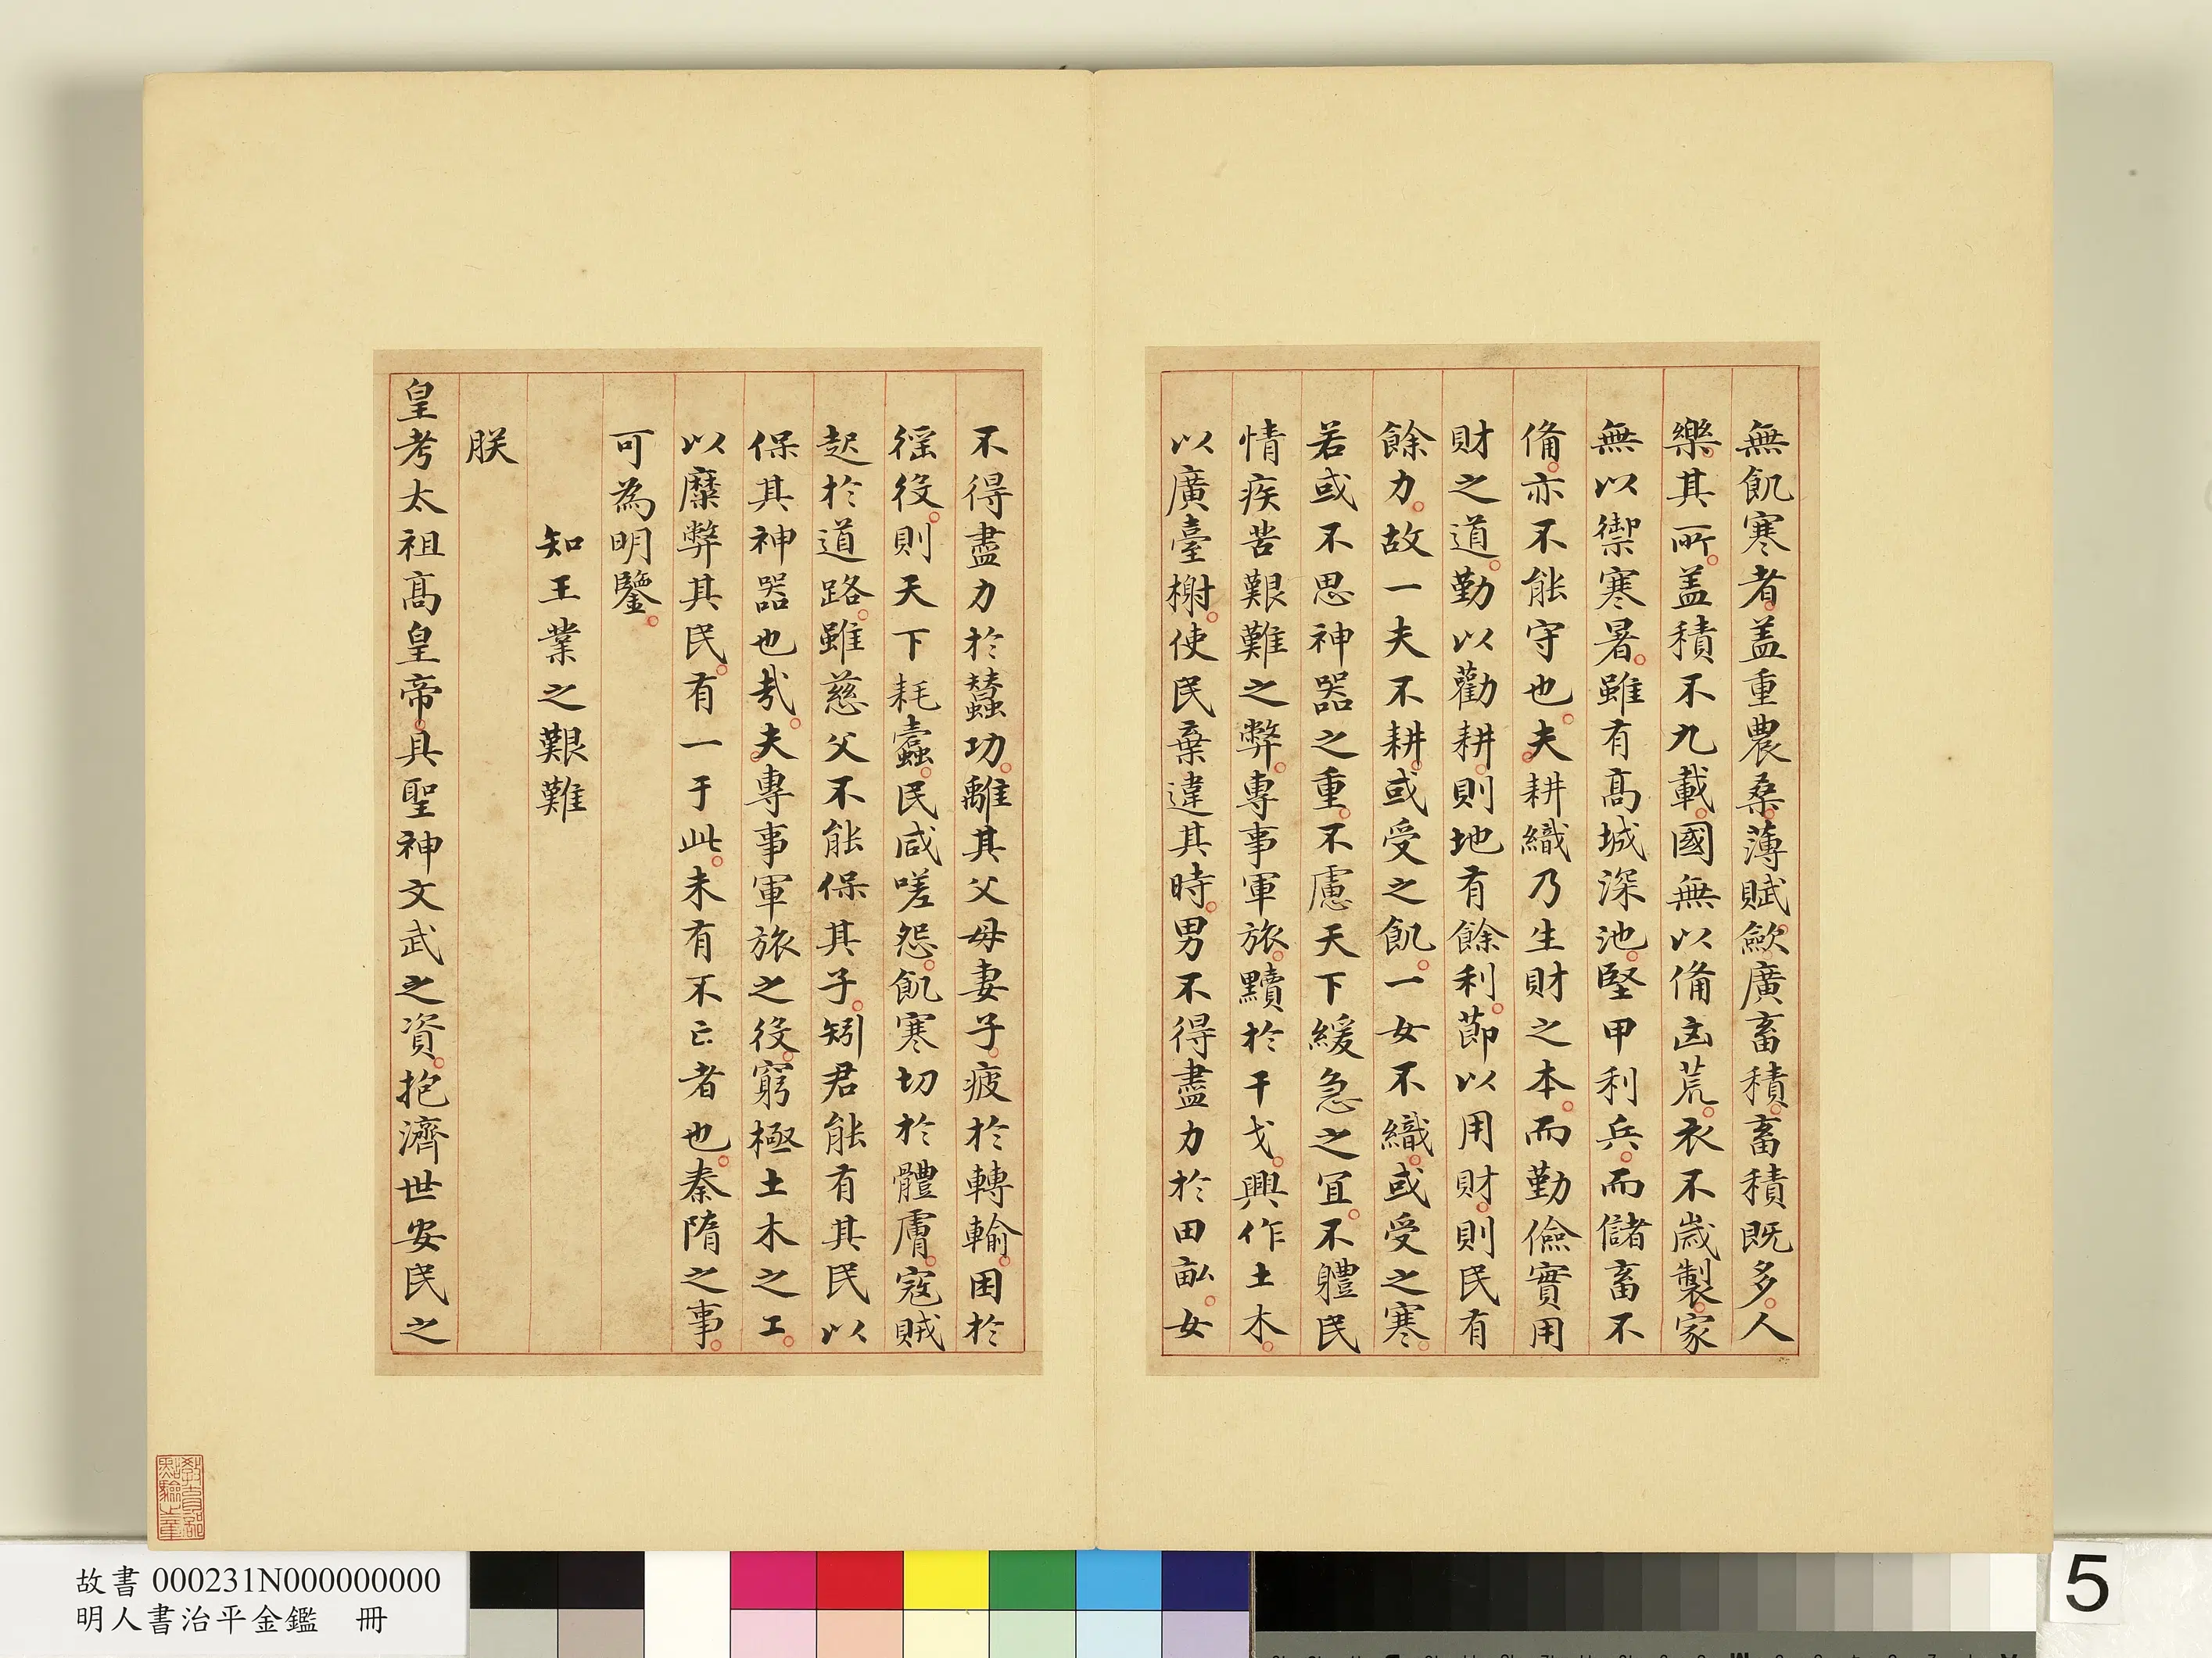 無飢寒者蓋重農桑薄賦歛廣畜積畜積既多人
樂其所蓋積不九載國無以俻凶荒衣不歲製家
無以禦寒暑雖有髙城深池堅甲利兵而儲畜不
俻亦不能守也夫耕織乃生財之本而勤儉實用
財之道勤以勸耕則地有餘利節以用財則民有
餘力故一夫不耕或受之飢一女不織或受之寒
若或不思神器之重不慮天下緩急之宜不軆民
情疾苦艱難之弊專事軍旅黷於干戈興作土木
以廣臺榭使民棄違其時男不得盡力於田畝女
不得盡力於蠶功離其父母妻子疲於轉輸困於
徭役則天下耗蠹民咸嗟怨飢寒切於體膚寇賊
起於道路雖慈父不能保其子矧君能有其民以
保其神器也㢤夫專事軍旅之役窮極土木之工
以糜弊其民有一于此未有不亡者也秦隋之事
可為明鑒
知王業之艱難
朕
皇考太祖髙皇帝具聖神文武之資抱濟世安民之
教育部
點驗之章
故書 000231N000000000
明人書治平金鑑 冊
5